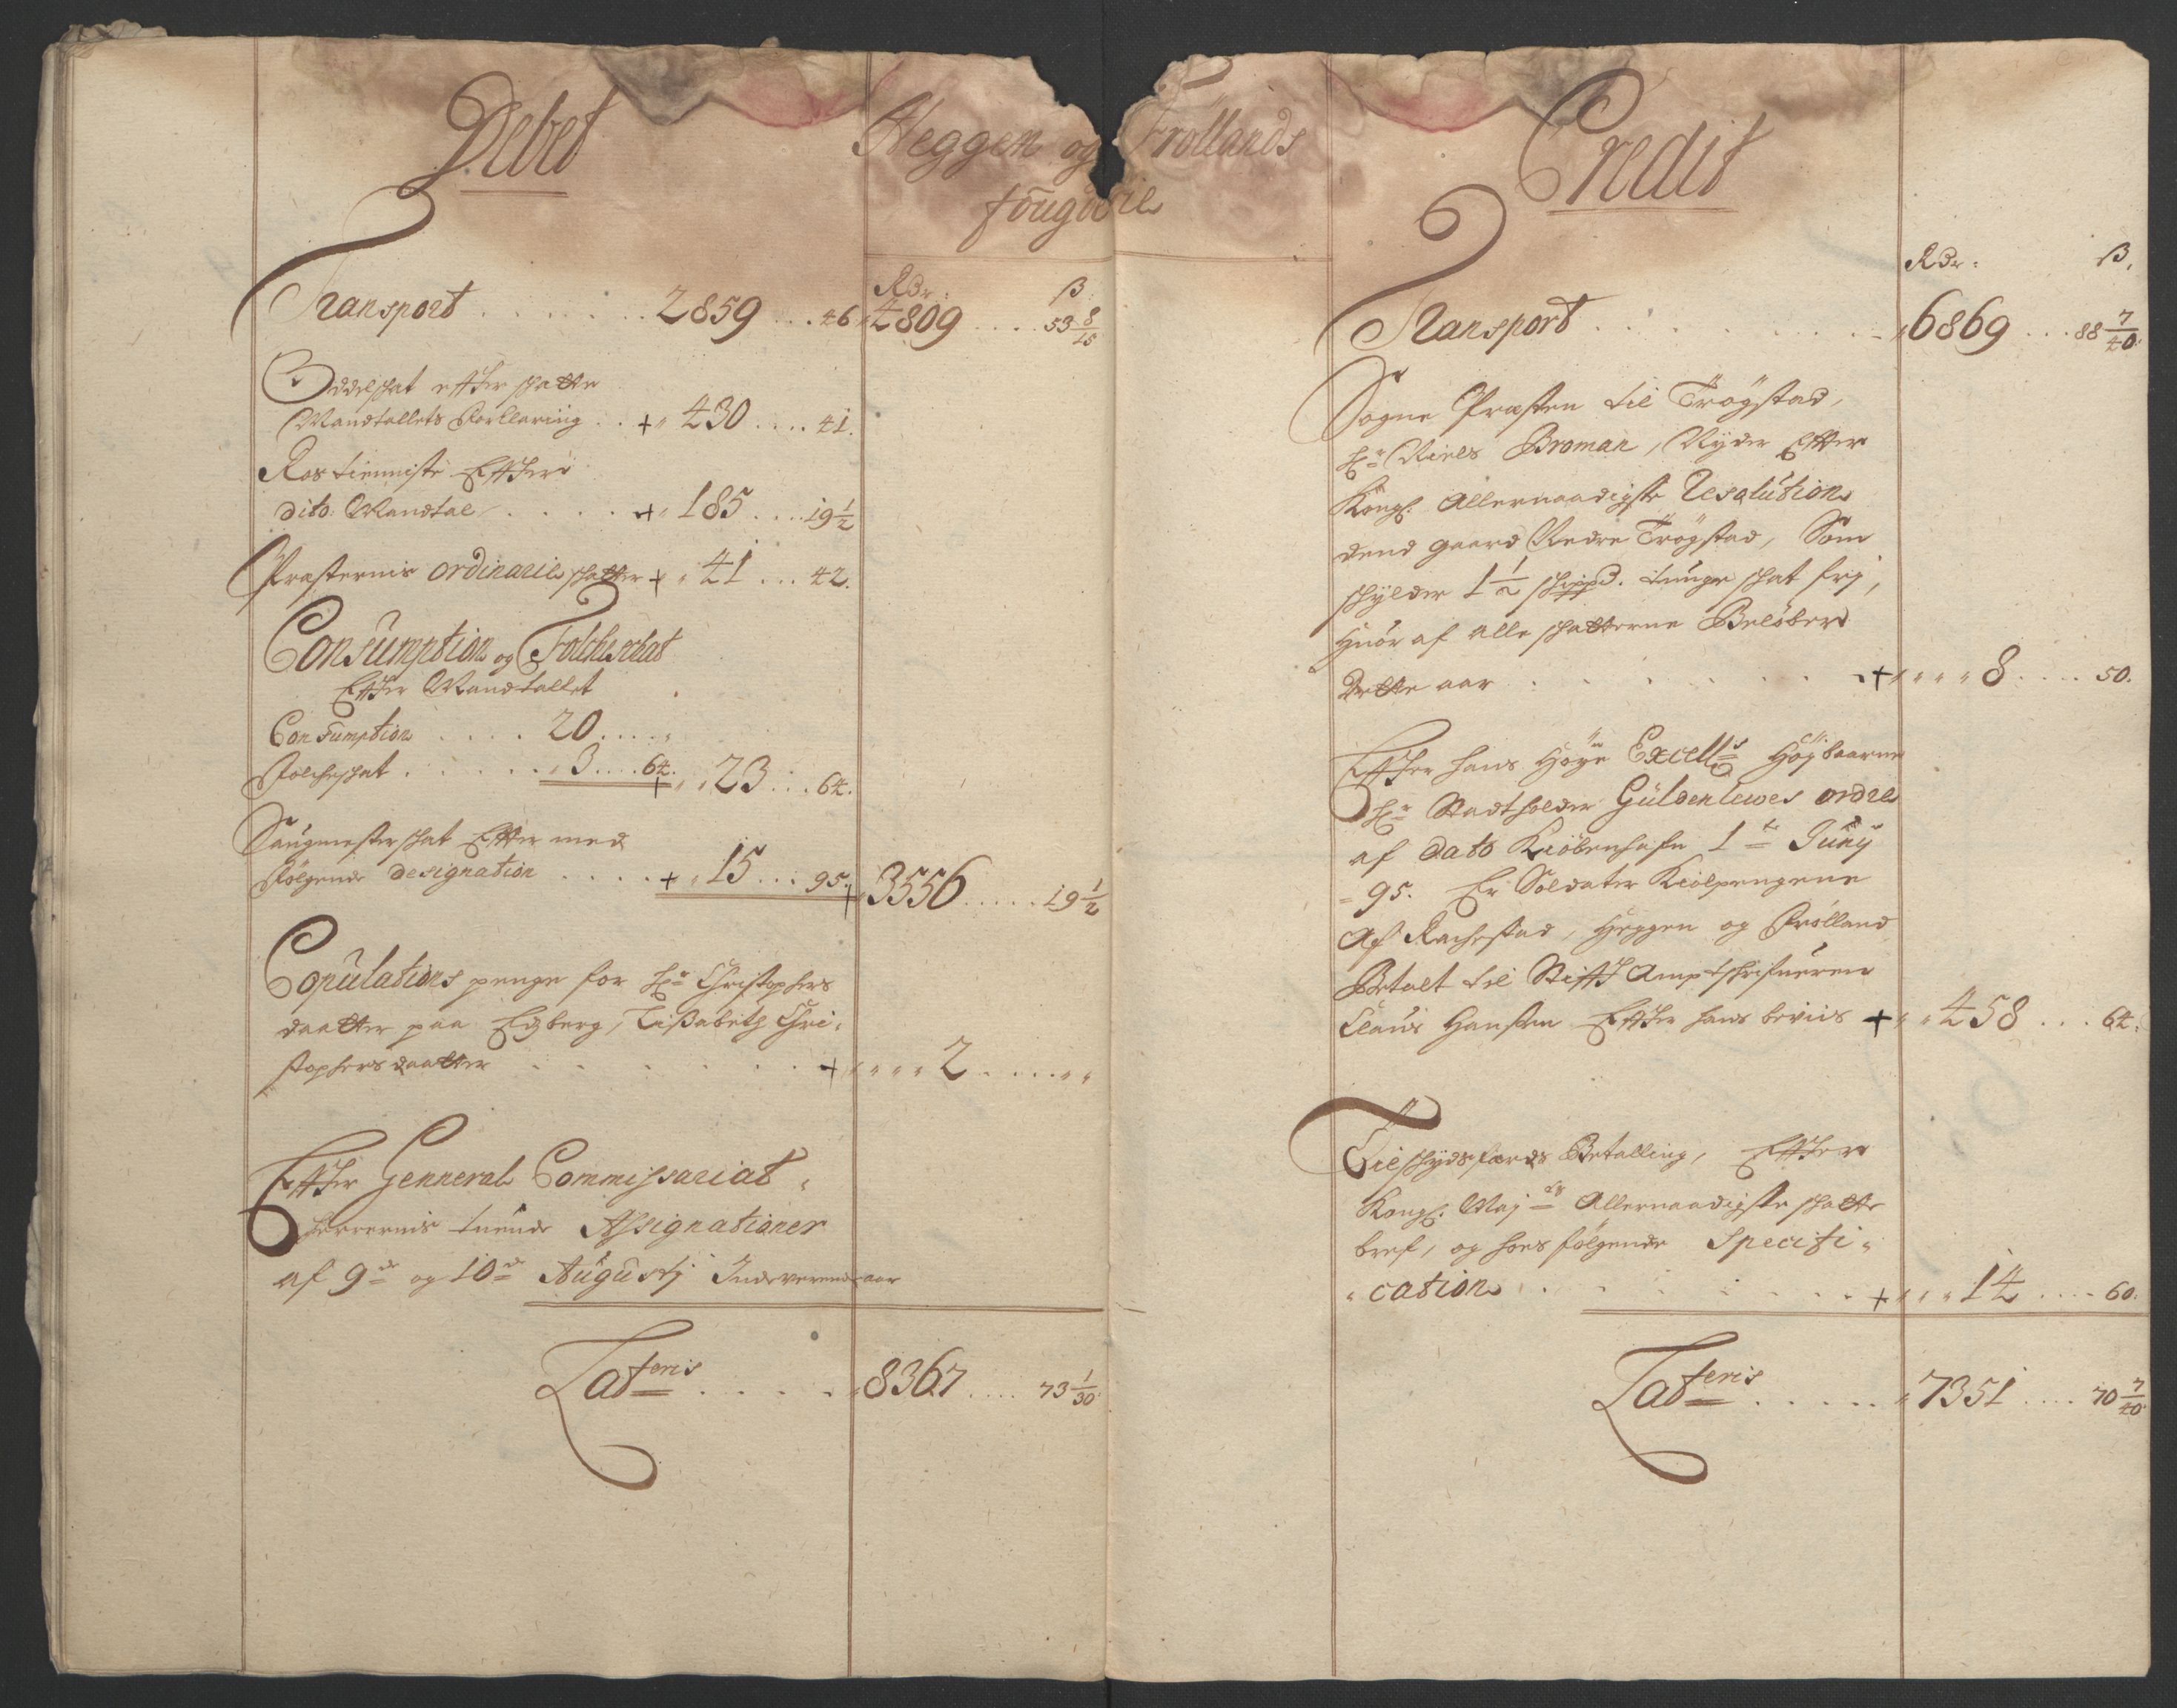 Debet
Heggen og Frøllands
fougderie
Rdr: ß
Transport . . . . . . . 2859 . . . 46 4809 . . . . 53 8/15
Oddelskat effter skatte
Mandtallets Forklaring . . + 430 . . . . 41.
Rostienniste Effter
dito Mandtal . . . . + 185 . . . . 19 1/2
Præsternis ordinarie skatter + 41 . . . 42.
Consumption og Folcheschat
Effter Mandtallet
Consumption . . . . 20 . . . .
Folcheskat . . . . . . 3 . . . . 64. + 23 . . . 64.
Saugmesterskat Effter med
følgende designation . . . . + 15 . . . 95. + 3556 . . . . . 19 1/2
Copulations penge for Hr Christophers
daatter paa Edsberg, Lisabeth Chri-
stophersdaatter . . . . . . . + 2 . . . . .
Effter Genneral Commissariat-
herrernis tuende Assignationer
af 9de og 10de Augustj Indeverende aar
Lateris . . . . . 8367 . . . . 73 1/30
Credit
Rdr: ß.
Transport . . . . . . . . 6869 . . . 88 7/40
Sogne Præsten til Trøgstad,
Hr Niels Broman, Nyder Effter
Kongl. Allernaadigste Resolution
dend gaard Nedre Trøgstad, Som
skylder 1 1/2 skippd. tunge skat frj,
Huor af alle skatterne Beløber
Dette aar . . . . . . . + 8 . . . . 50.
Effter hans Høye Excells Høybaarne
Hr Stadtholder Güldenlewes ordre
af dato Kiøbenhafn 1te Junij
- 95. Er Soldater Kiolpengene
Af Rachestad, Heggen og Frølland
Betalt til Stifft Amptskrifueren
Claus Hansen Effter hans beviis + 458 . . . 64.
Tilskydsfærds Betalling, Effter
Kongl. Mayts Allernaadigste skatte
bref, og hosfølgende Specifi-
-cation . . . . . . . + 14 . . . . 60.
Lateris . . . . . 7351 . . . . 70 7/40